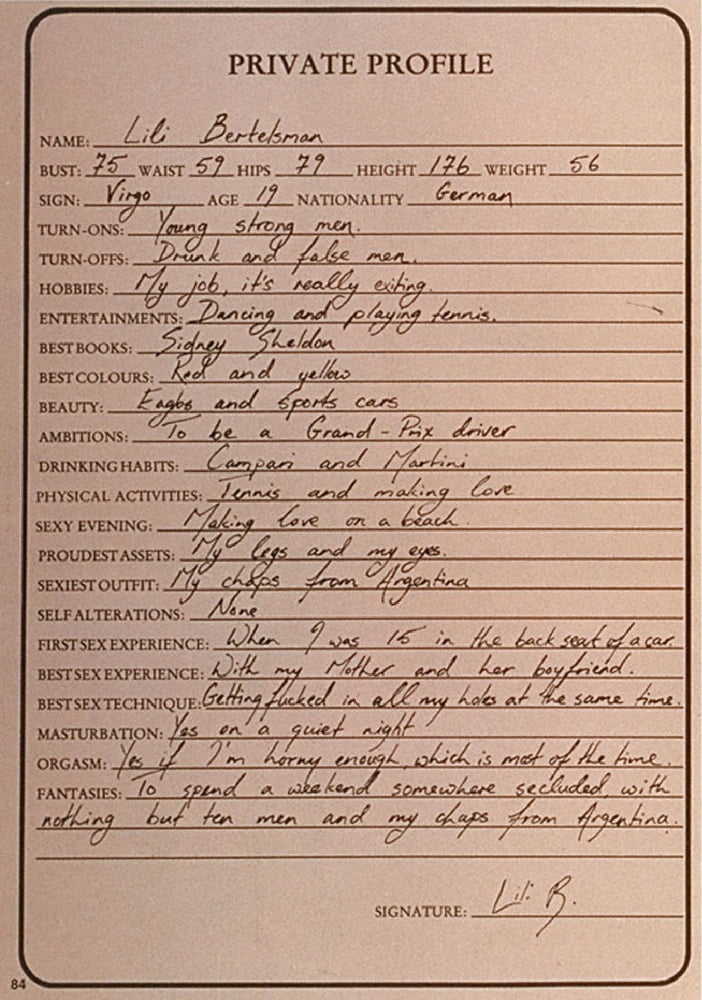 PRIVATE PROFILE
NAME: Lili Bertelsman
BUST: 75 WAIST 59 HIPS 79 HEIGHT 176 WEIGHT 56
SIGN: Virgo AGE 19 NATIONALITY German
TURN-ONS: Young strong men.
TURN-OFFS: Drunk and false men.
HOBBIES: My job, it's really exiting.
ENTERTAINMENTS: Dancing and playing tennis.
BEST BOOKS: Sidney Sheldon
BEST COLOURS: Red and yellow
BEAUTY: and sports cars
AMBITIONS: To be a Grand-Prix driver
DRINKING HABITS: Campari and Martini
PHYSICAL ACTIVITIES: Tennis and making love
SEXY EVENING: Making love on a beach.
PROUDEST ASSETS: My legs and my eyes.
SEXIEST OUTFIT: My chaps from Argentina
SELF ALTERATIONS: None
BEST SEX TECHNIQUE: Getting fucked in all my holes at the same time.
MASTURBATION: Yes on a quiet night
ORGASM: Yes if I'm horny enough, which is most of the time.
FANTASIES: To spend a weekend somewhere secluded, with
nothing but ten men and my chaps from Argentina.
SIGNATURE: Lili B.
84